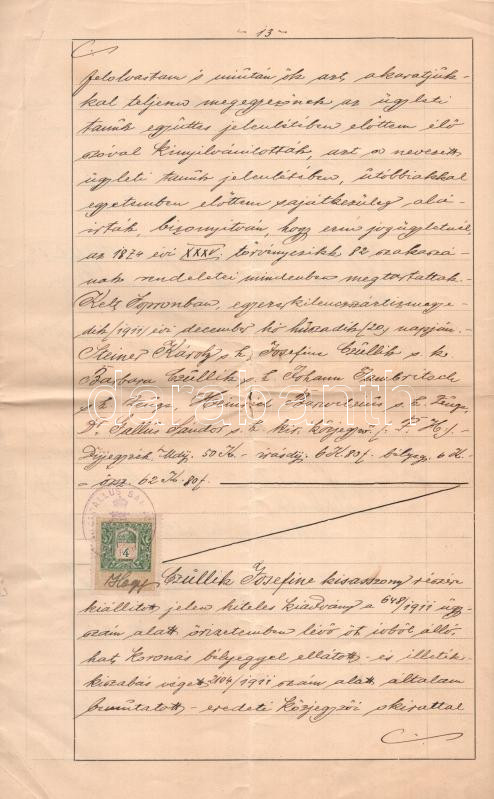 - 13 -
felolvastam s miután ők azt, akaratjuk-
kal teljesen megegyezőnek az ügyleti
tanúk együttes jelenlétében előttem élő
szóval kinyilvánították, azt a nevezett
ügyleti tanúk jelenlétében, utóbbiakkal
egyetemben előttem sajátkezüleg alá-
irták, bizonyitván, hogy ezen jogügyletnél,
az 1874 évi XXXV. törvényczikk 82 szakaszá-
nak rendeletei mindenben megtartattak.
Kelt Sopronban, egyezerkilenczszáztizenegye-
dik /1911/ évi december hó huszadik /20/ napján. -
Steiner Károly s. k. Josefine Czüllik s. k.
Barbara Czüllik s. k. Johann Jambritsch
s. k. Zeuge Heinrich s. k. Zeuge,
Dr. Sallus Sándor s. k. kir. közjegyző /. P. H. /. -
Dijjegyzék: 50 K. - irásdij. 6 K. 80 f. bélyeg. 6 K. -
össz. 62 K. 80 f.
SALLUS SÁN
4
Czüllik Josefine kisasszony részére
kiállitott jelen hiteles kiadvány a 648/1911 ügy-
szám alatt őrizetemben lévő öt ivből álló,
hat koronás bélyeggel ellátott - és illeték-
kiszabás végett 2104/1911 szám alatt általam
bemutatott - eredeti közjegyzői okirattal
darabanth